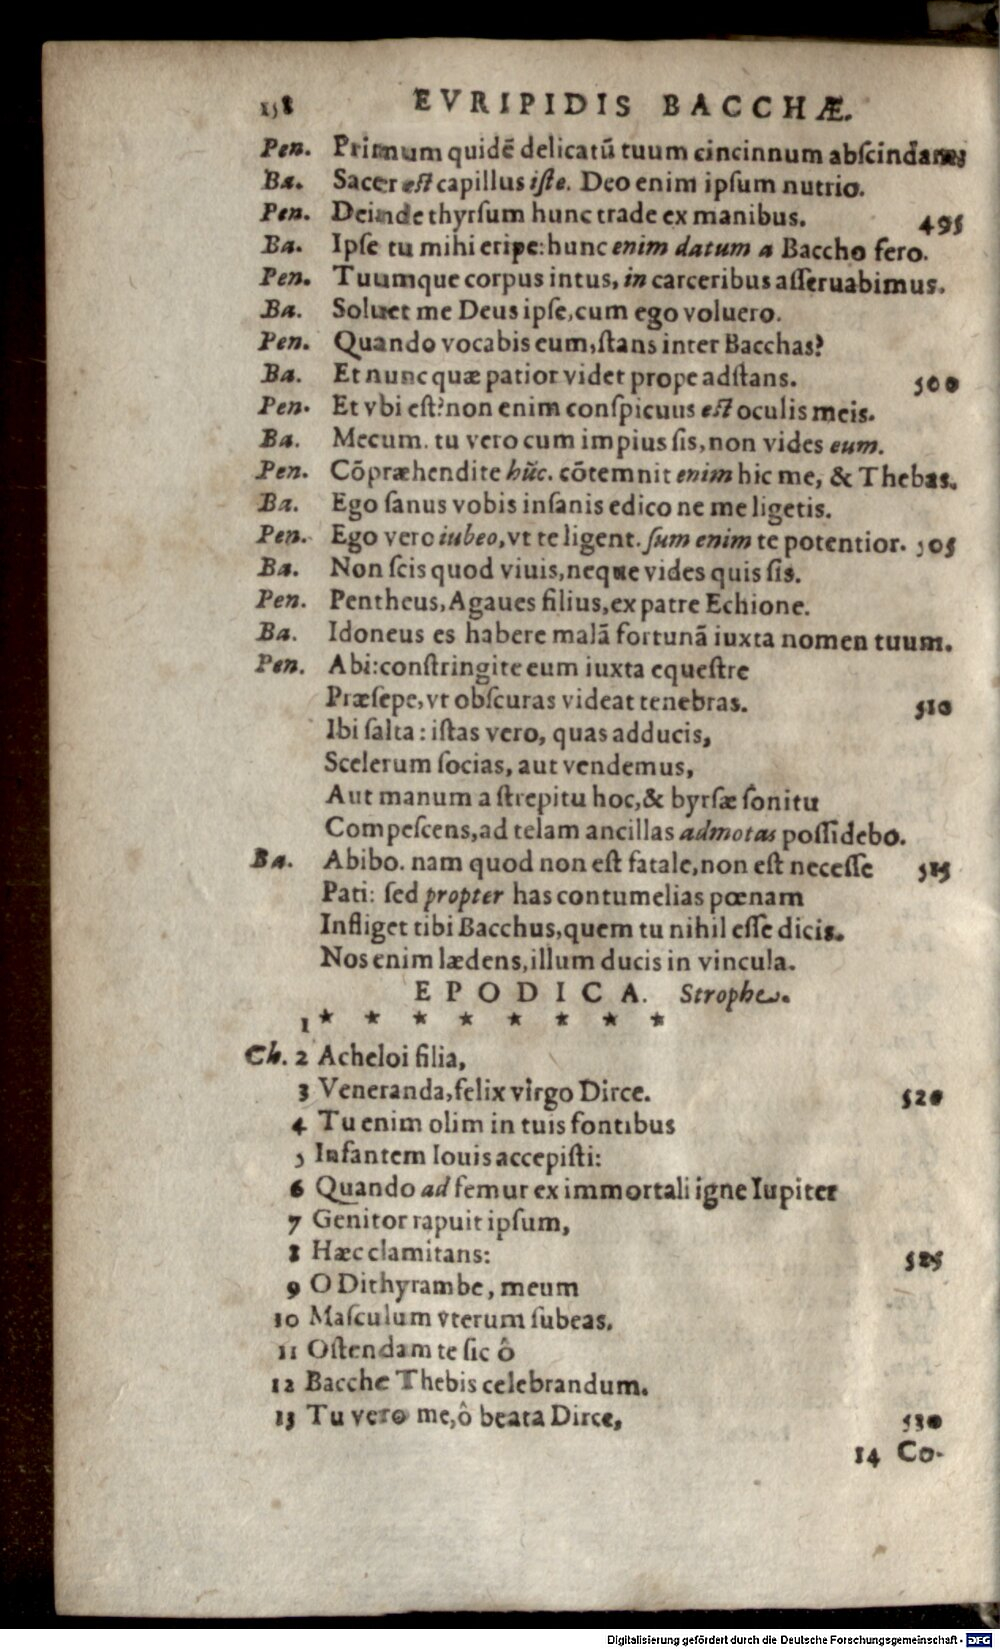 158 EVRIPIDIS BACCHÆ.
Pen. Primum quidē delicatū tuum cincinnum abſcindam
Ba. Sacer est capillus iſte. Deo enim ipſum nutrio.
Pen. Deinde thyrſum hunc trade ex manibus. 495
Ba. Ipſe tu mihi eripe: hunc enim datum a Baccho fero.
Pen. Tuumque corpus intus, in carceribus aſſeruabimus.
Ba. Soluet me Deus ipſe, cum ego voluero.
Pen. Quando vocabis eum, ſtans inter Bacchas?
Ba. Et nunc quæ patior videt prope adſtans. 500
Pen. Et vbi eſt? non enim conſpicuus est oculis meis.
Ba. Mecum. tu vero cum impius ſis, non vides eum.
Pen. Cōpræhendite hūc. cōtemnit enim hic me, & Thebas.
Ba. Ego ſanus vobis inſanis edico ne me ligetis.
Pen. Ego vero iubeo, vt te ligent. ſum enim te potentior. 505
Ba. Non ſcis quod viuis, neque vides quis ſis.
Pen. Pentheus, Agaues filius, ex patre Echione.
Ba. Idoneus es habere malā fortunā iuxta nomen tuum.
Pen. Abi: conſtringite eum iuxta equeſtre
Præſepe, vt obſcuras videat tenebras. 510
Ibi ſalta: iſtas vero, quas adducis,
Scelerum ſocias, aut vendemus,
Aut manum a ſtrepitu hoc, & byrſæ ſonitu
Compeſcens, ad telam ancillas admotas poſſidebo.
Ba. Abibo. nam quod non eſt fatale, non eſt neceſſe 515
Pati: ſed propter has contumelias pœnam
Infliget tibi Bacchus, quem tu nihil eſſe dicis.
Nos enim lædens, illum ducis in vincula.
EPODICA. Strophe.
1 * * * * * * * *
Ch. 2 Acheloi filia,
3 Veneranda, felix virgo Dirce. 520
4 Tu enim olim in tuis fontibus
5 Infantem Iouis accepiſti:
6 Quando ad femur ex immortali igne Iupiter
7 Genitor rapuit ipſum,
8 Hæc clamitans: 525
9 O Dithyrambe, meum
10 Maſculum vterum ſubeas.
11 Oſtendam te ſic ô
12 Bacche Thebis celebrandum.
13 Tu vero me, ô beata Dirce, 530
14 Co-
Digitalisierung gefördert durch die Deutsche Forschungsgemeinschaft - DFG